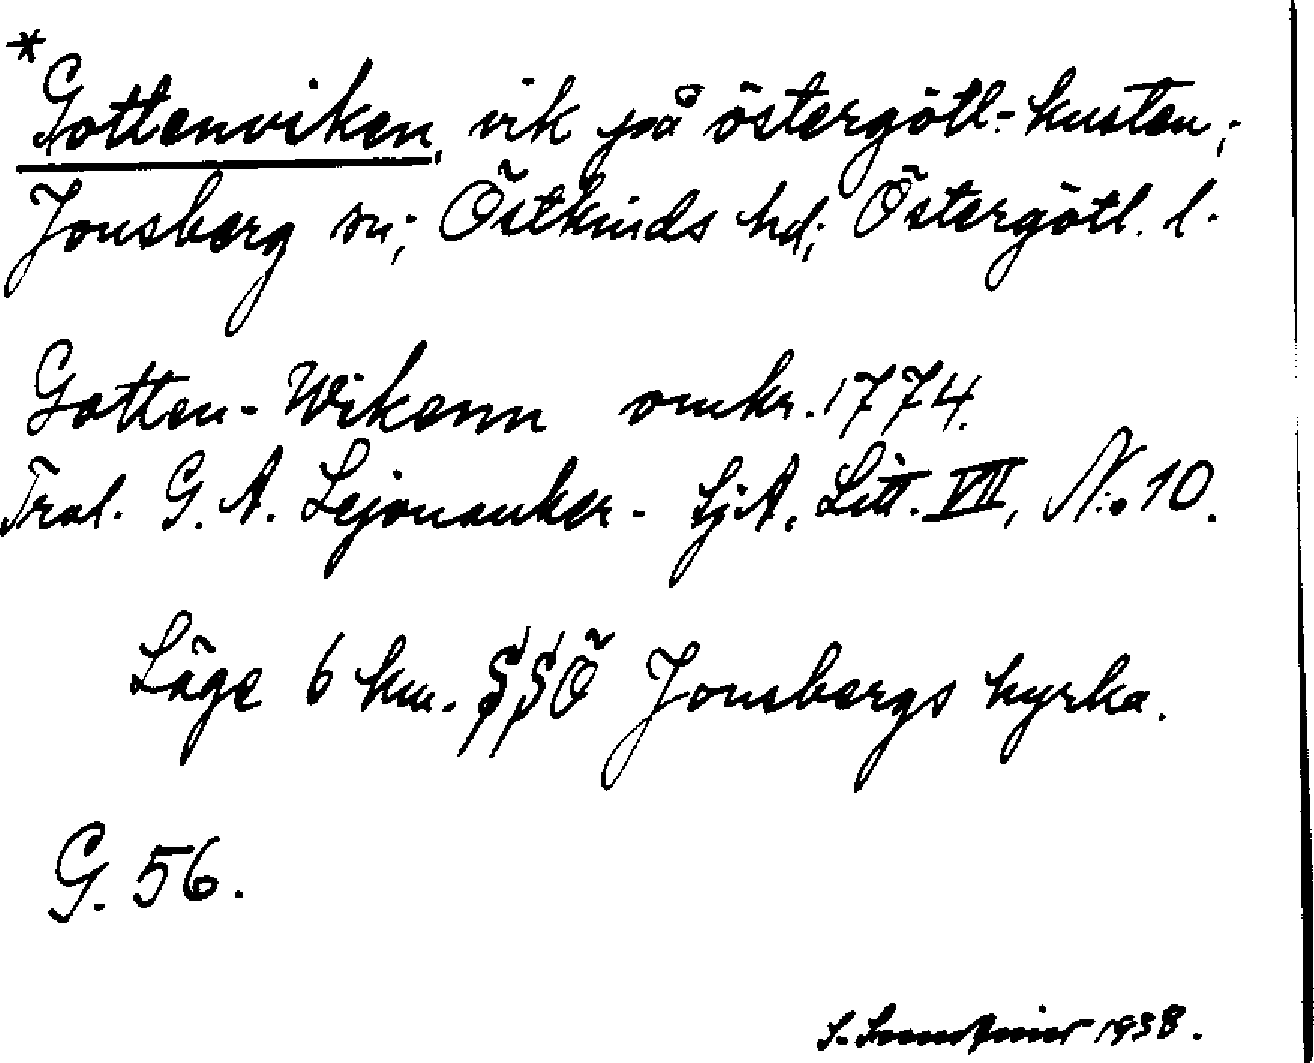 *Gottenviken, vik på östergötl-kusten;
Jonsberg sn; Östkinds hd; Östergötl. l.
Gotten-Wikenn omkr. 1774.
Trol. G. A. Lejonanker. SjA, Litt. VII, No 10.
Läge 6 km. SSÖ Jonsbergs kyrka.
G. 56.
1938.